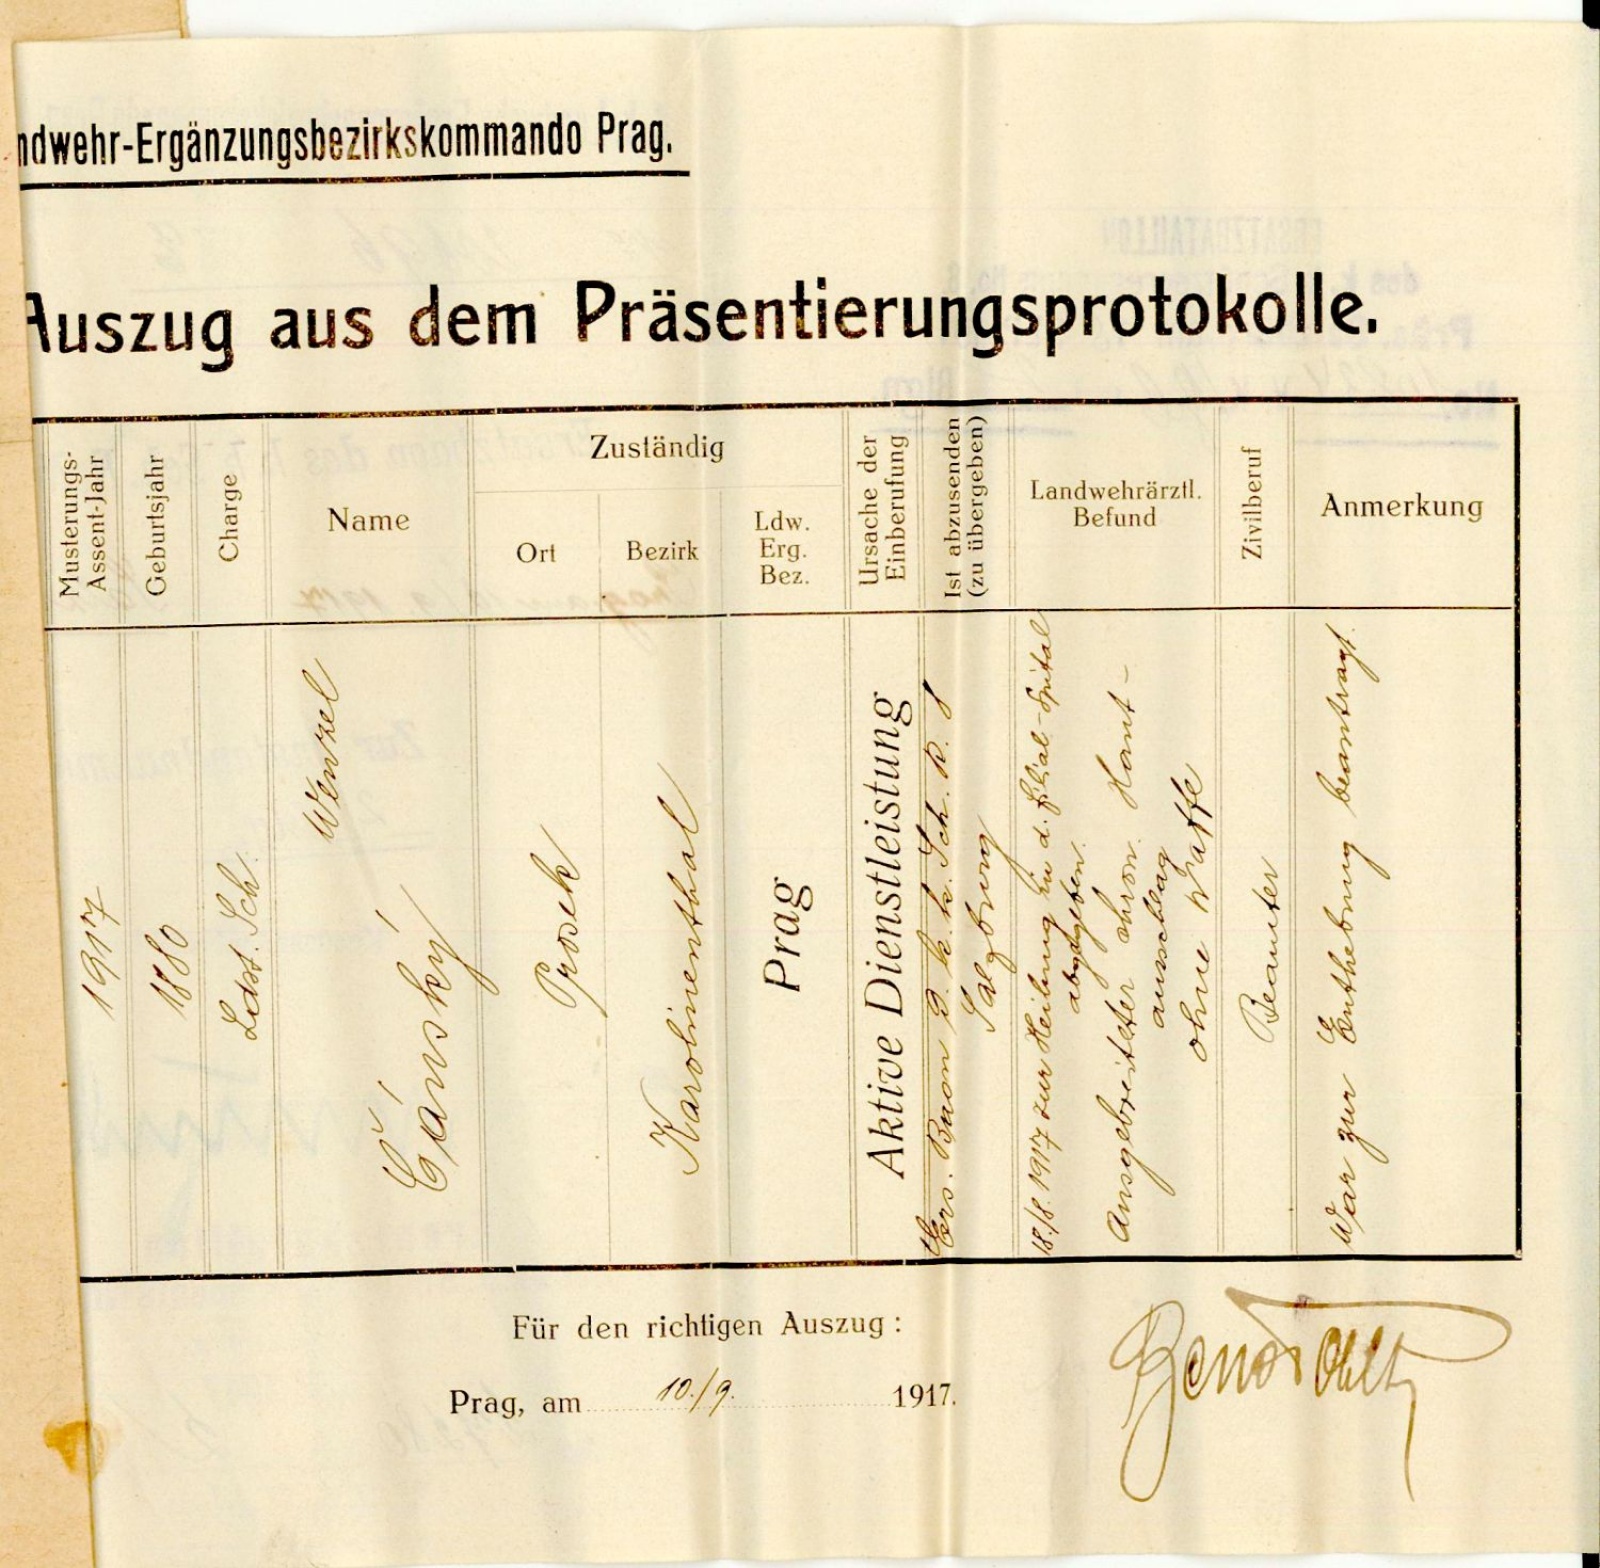 ndwehr-Ergänzungsbezirkskommando Prag.
Auszug aus dem Präsentierungsprotokolle.
Musterungs-
Assent-Jahr
Geburtsjahr
Charge
Name
Zuständig
Ort
Bezirk
Ldw.
Erg.
Bez.
Ursache der
Einberufung
Ist abzusenden
(zu übergeben)
Landwehrärztl.
Befund
Zivilberuf
Anmerkung
1917
1880
Ldst. Sch.
Wenzel
Čánský
Prosek
Karolinenthal
Prag
Aktive Dienstleistung
Ers. Baon d. k. k. Sch. R. 8
Salzburg
18./8. 1917 zur Heilung in d. Filial-Spital
abgegeben.
Ausgebreiteter chron. Haut-
ausschlag
ohne Waffe
Beamter
War zur Enthebung beantragt.
Für den richtigen Auszug:
Prag, am 10./9. 1917.